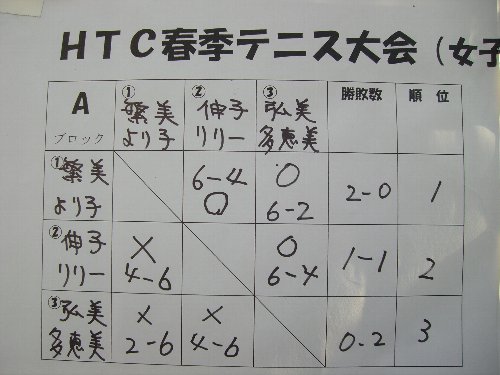 HTC春季テニス大会（女子
A
ブロック
① 繁美 より子
② 伸子 リリー
③ 弘美 多恵美
勝敗数
順位
① 繁美 より子
6-4 ○
○ 6-2
2-0
1
② 伸子 リリー
× 4-6
○ 6-4
1-1
2
③ 弘美 多恵美
× 2-6
× 4-6
0-2
3